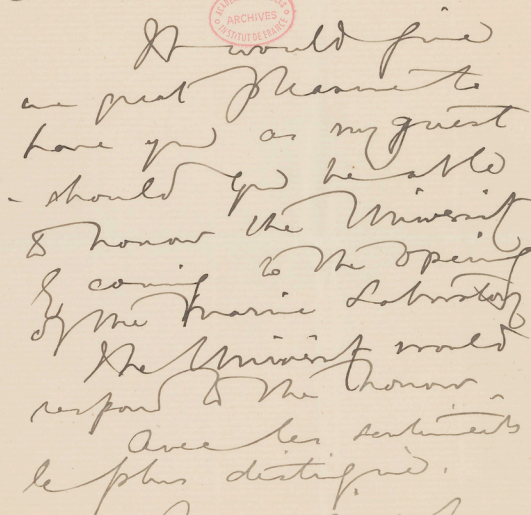 ARCHIVES
INSTITUT DE FRANCE
It would give
me great pleasure to
have you as my guest
- should you be able
to honour the University
by coming to the opening
of the Marine Laboratory
The University would
respond to the honour.
Avec les sentiments
le plus distingué.